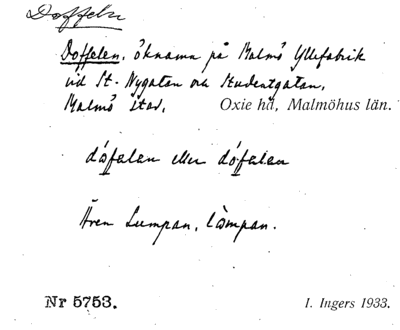 Doffeln
Doffelen, öknamn på Malmö Yllefabrik
vid St. Nygatan och Studentgatan,
Malmö stad, Oxie hd, Malmöhus län.
dófelen eller dòfelen
Även Lumpan, lòmpan.
Nr 5753. I. Ingers 1933.